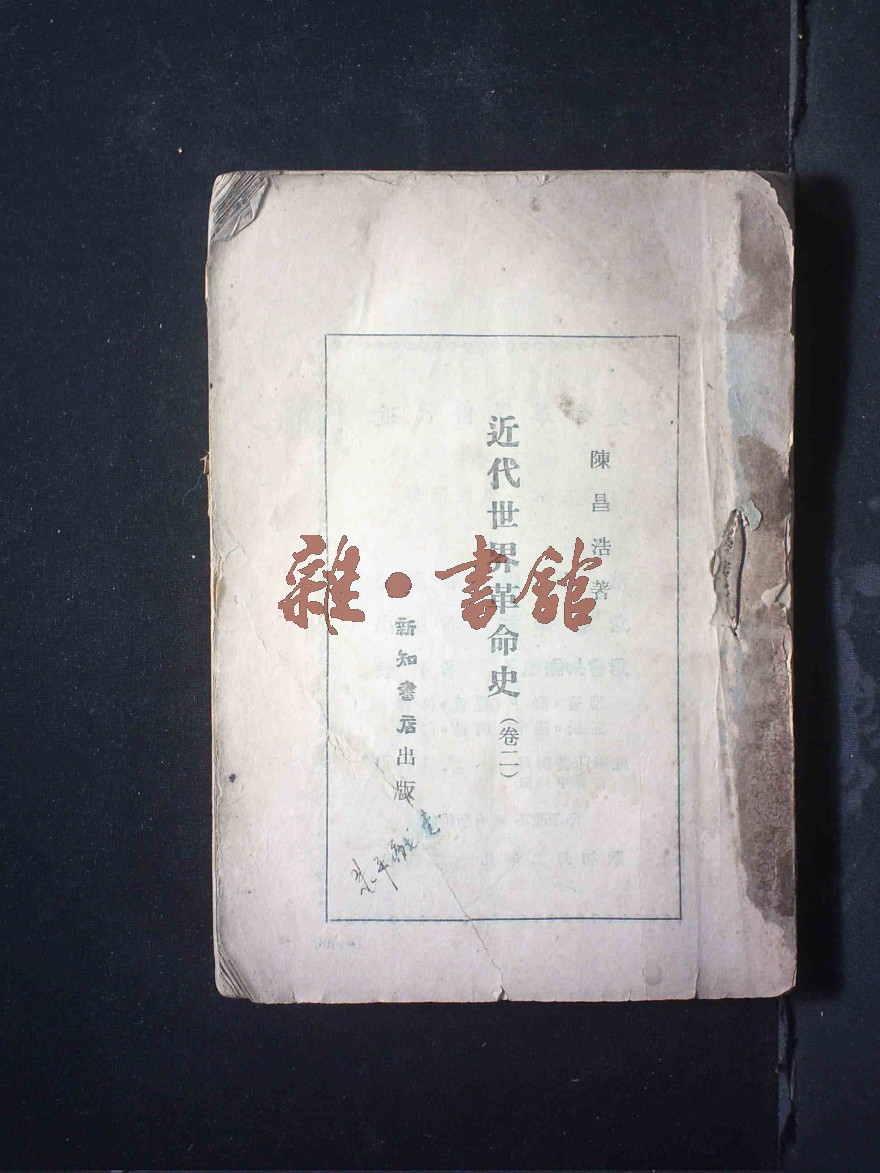 陳昌浩著
近代世界革命史（卷二）
新知書店出版
雜·書館